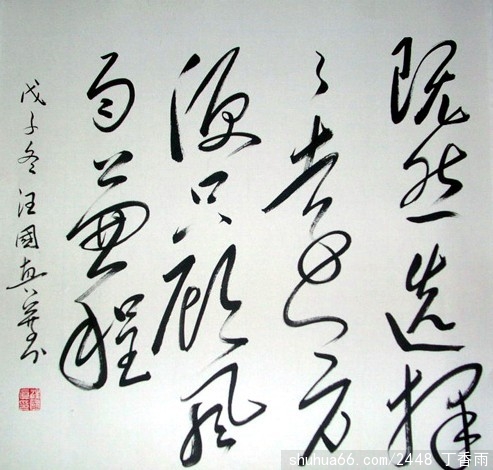 既然选择
了遠方
便只顾風
雨兼程
戊子冬汪國真并书
shuhua66.com/2448 丁香雨